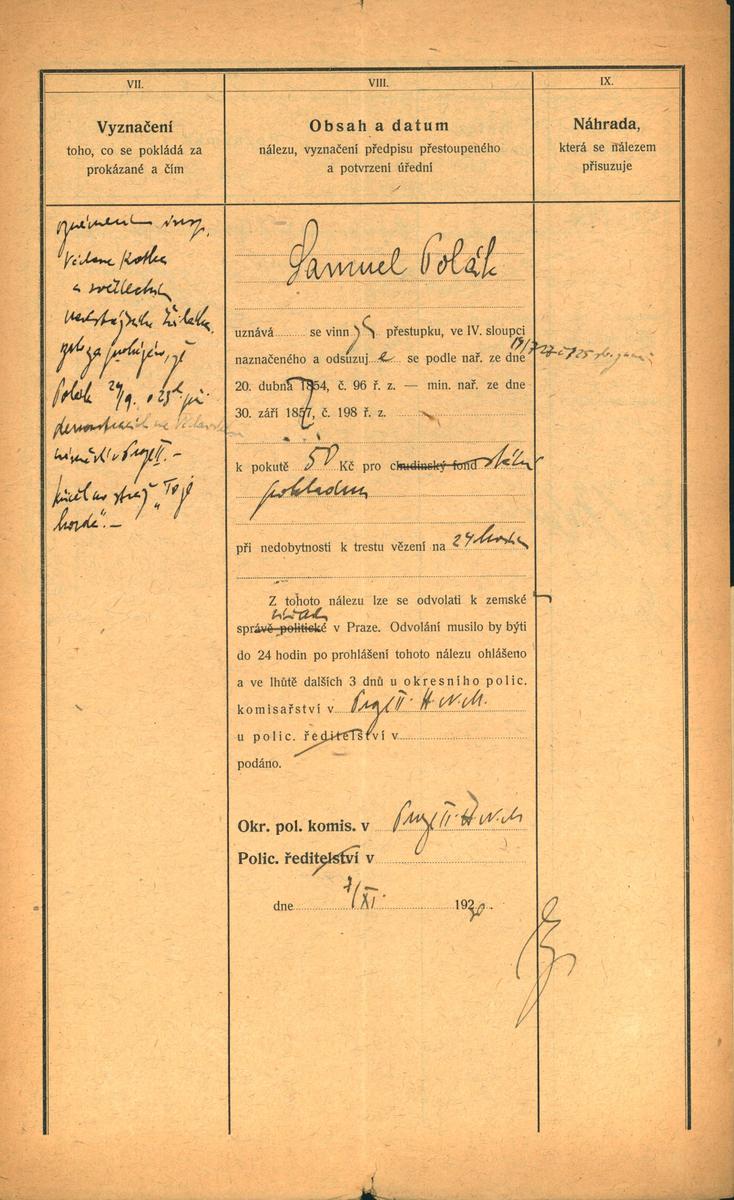 VII.
Vyznačení
toho, co se pokládá za
prokázané a čím
VIII.
Obsah a datum
nálezu, vyznačení předpisu přestoupeného
a potvrzení úřední
IX.
Náhrada,
která se nálezem
přisuzuje
oznámením insp.
a svědectvím
Polák 24/9. o 23 h. při
demonstracích na
náměstí v Praze II. –
křičel na stráž „To je
Samuel Polák
uznává se vinným přestupku, ve IV. sloupci
naznačeného a odsuzuje se podle nař. ze dne
20. dubna 1854, č. 96 ř. z. — min. nař. ze dne
30. září 1857, č. 198 ř. z.
k pokutě 50 Kč pro chudinský fond státní
pokladnu
při nedobytnosti k trestu vězení na 24 hodin
Z tohoto nálezu lze se odvolati k zemské
úřadu
správě politické v Praze. Odvolání musilo by býti
do 24 hodin po prohlášení tohoto nálezu ohlášeno
a ve lhůtě dalších 3 dnů u okresního polic.
komisařství v Praze II. H. N. M.
u polic. ředitelství v
podáno.
Okr. pol. komis. v Praze II. H. N. M
Polic. ředitelství v
dne 7/XI. 192